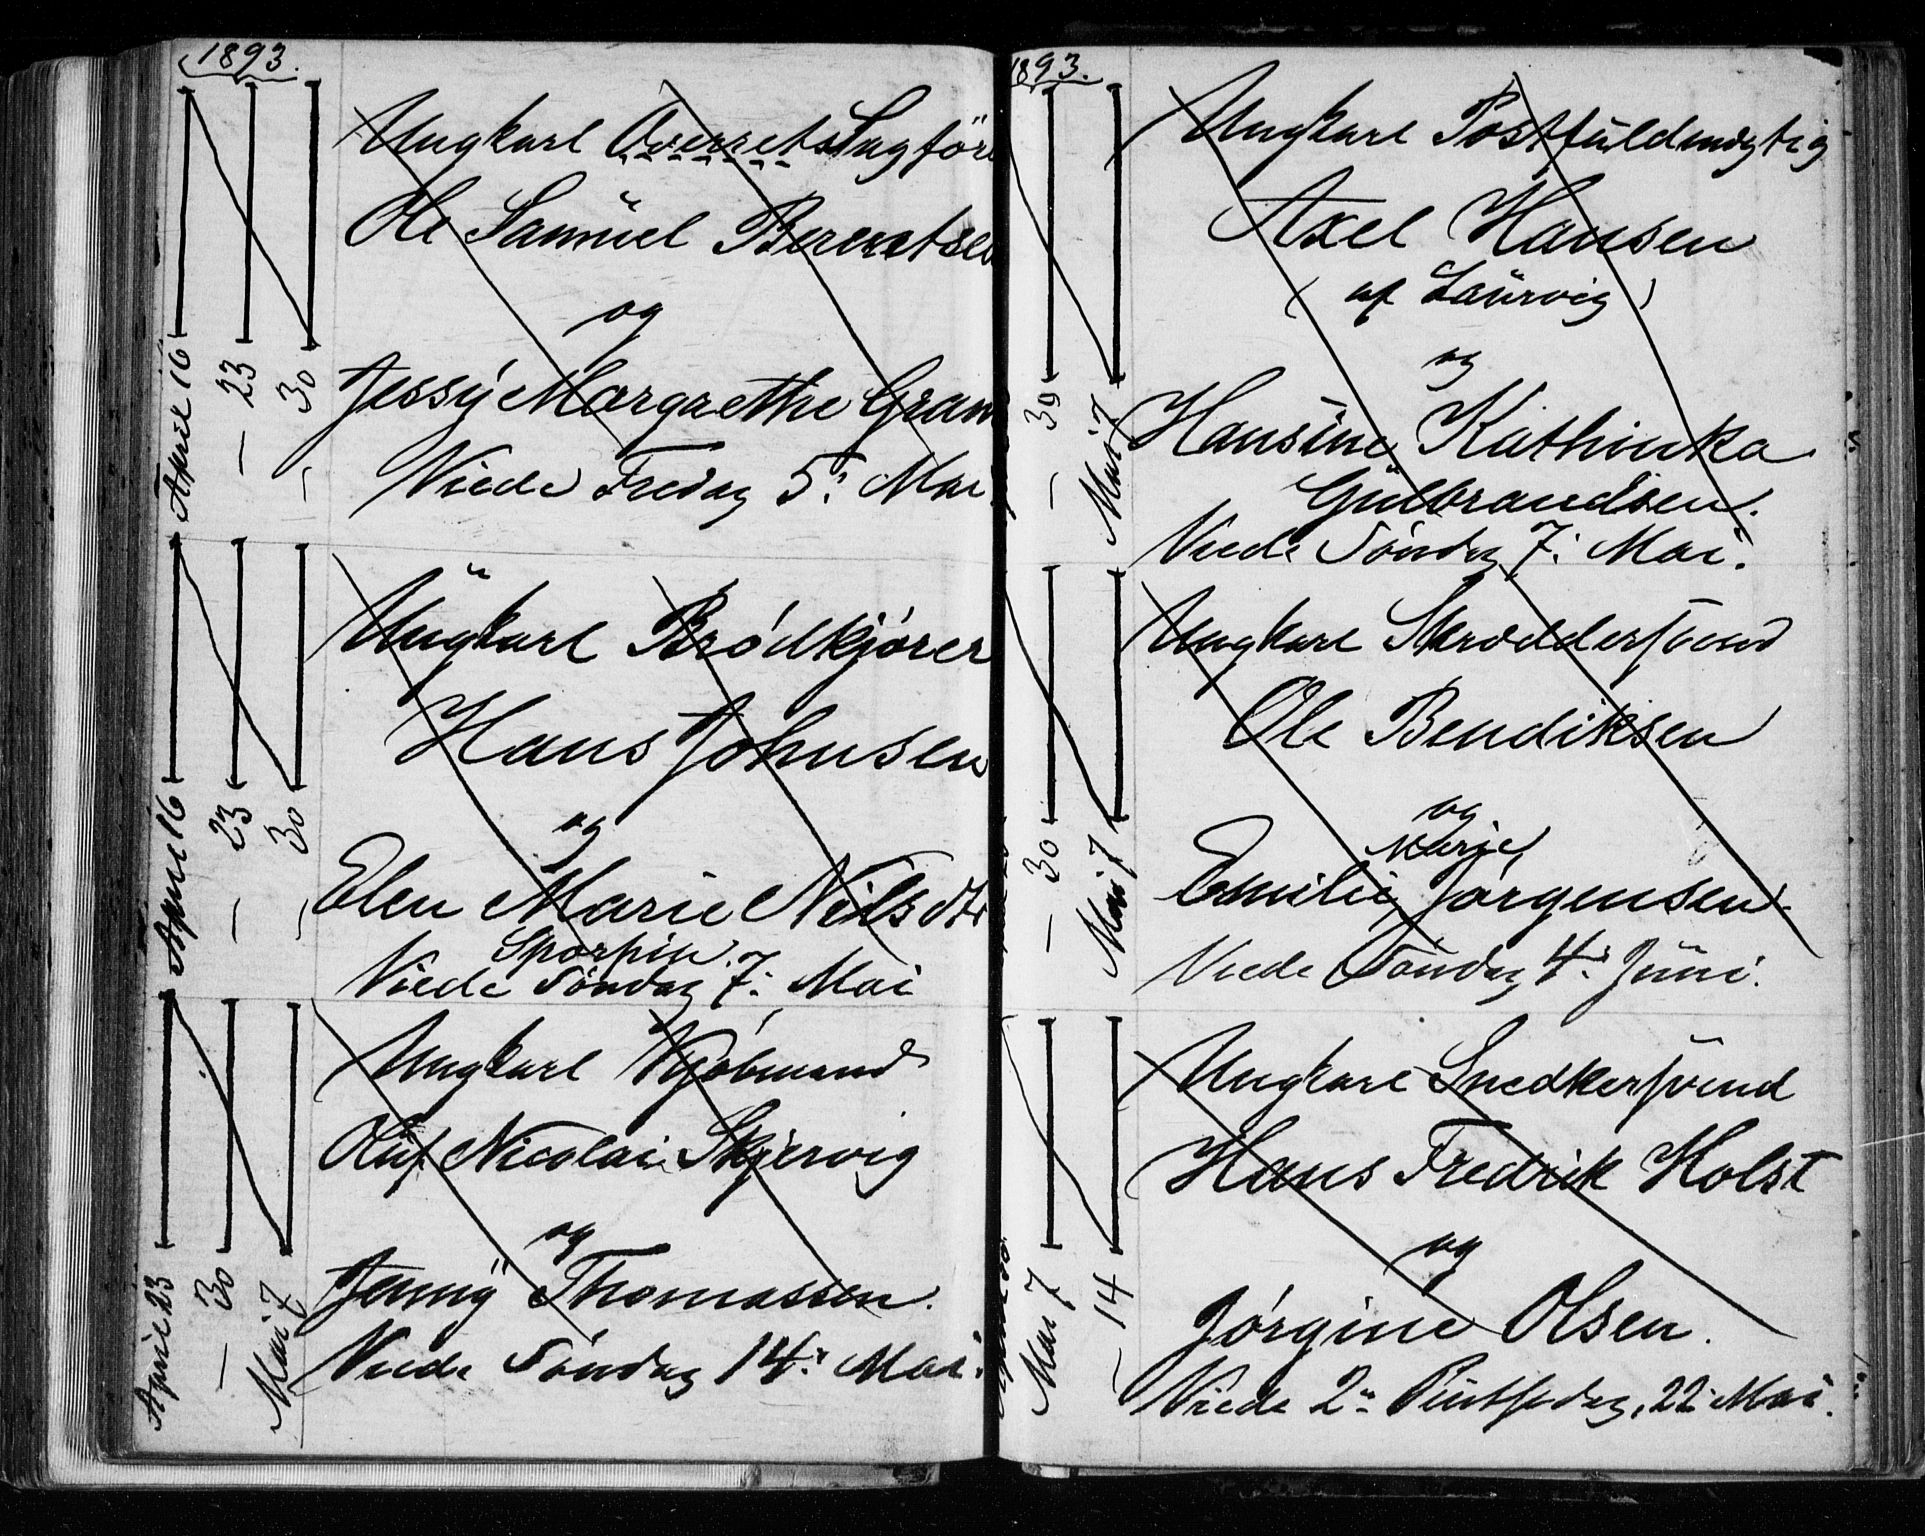 1893.
April 16
— 23
— 30
Ungkarl Overretssagföre
Ole Samuel Berentsen
og
Jessy Margrethe Gram
Viede Fredag 5: Mai
April 16
— 23
— 30
Ungkarl Brødkjører
Hans Johnsen
og
Elen Marie Nilsdtr
Viede Søndag 7: Mai
April 23
— 30
Mai 7
Ungkarl Kjøbmand
Oluf Nicolai Skjervig
og
Jenny Thomassen.
Viede Søndag 14: Mai.
1893.
— 30
Mai 7
Ungkarl Postfuldmægtig
Axel Hansen
(af Laurvig)
og
Hansine Kathinka
Gulbrandsen.
Viede Søndag 7: Mai.
— 30
Mai 7
Ungkarl Skræddersvend
Ole Bendiksen
og
Marie
Emilie Jørgensen.
Viede Søndag 4: Juni.
Mai 7
— 14
Ungkarl Snedkersvend
Hans Fredrik Holst
og
Jørgine Olsen.
Viede 2n Pintsedag, 22 Mai.